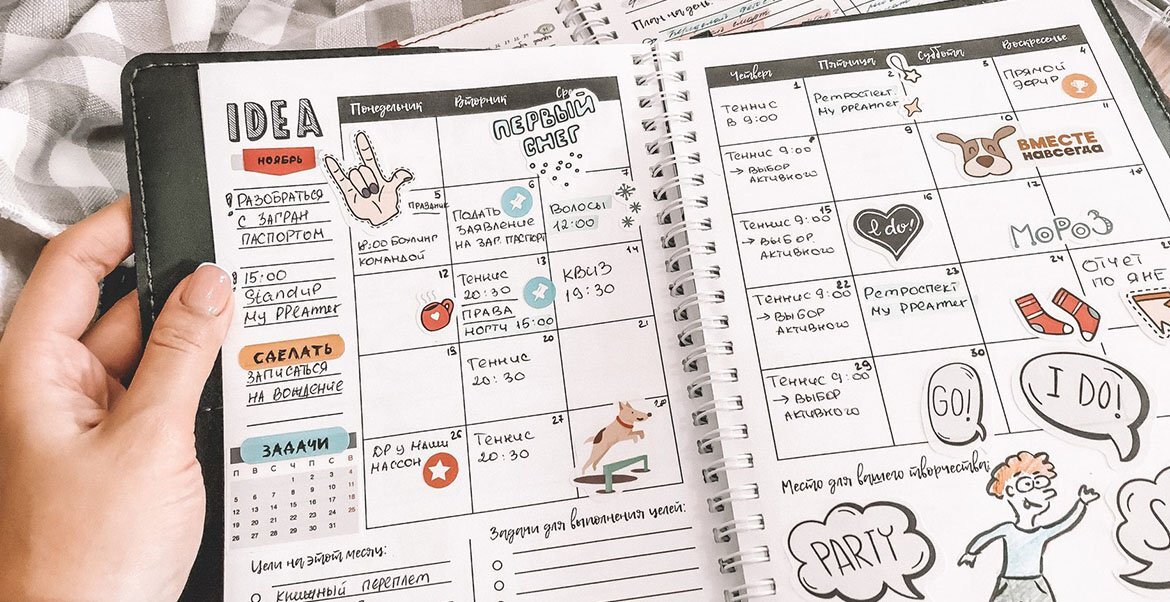 План на день:
IDEA
НОЯБРЬ
! РАЗОБРАТЬСЯ
С ЗАГРАН
ПАСПОРТОМ
15:00
StandUp
My PPEAmter
СДЕЛАТЬ
ЗАПИСАТЬСЯ
НА ВОЖДЕНИЕ
ЗАДАЧИ
П В С Ч П С В
1 2 3 4
5 6 7 8 9 10 11
12 13 14 15 16 17 18
19 20 21 22 23 24 25
26 27 28 29 30 31
Понедельник Вторник
ПЕРВЫЙ
СНЕГ
5
ПРАЗДНИК
18:00 БОУЛИНГ
КОМАНДОЙ
6
ПОДАТЬ
ЗАЯВЛЕНИЕ
НА ЗАГ. ПАСПОРТ
7
ВОЛОСЫ
12:00
12
13
ТЕННИС
20:30
ПРАВА
НОГТИ 15:00
14
КВИЗ
19:30
19
20
ТЕННИС
20:30
21
26
ДР У МАШИ
МАССОН
27
ТЕННИС
20:30
28
Цели на этот месяц:
КНИЖНЫЙ ПЕРЕПЛЕТ
Задачи для выполнения целей:
Четверг Пятница Суббота Воскресенье
1
ТЕННИС
В 9:00
2
РЕТРОСПЕКТ.
My PPEAmter
3
4
ПРЯМОЙ
ЭФИР
8
ТЕННИС 9:00
→ ВЫБОР
АКТИВНОГО
9
10
ВМЕСТЕ
НАВСЕГДА
11
15
ТЕННИС 9:00
→ ВЫБОР
АКТИВНОГО
16
I do!
17
МОРОЗ
18
22
ТЕННИС 9:00
→ ВЫБОР
АКТИВНОГО
23
РЕТРОСПЕКТ
My PPEAmter
24
ОТЧЕТ
ПО ЯНЕ
29
ТЕННИС 9:00
→ ВЫБОР
АКТИВНОГО
30
GO!
I DO!
Место для вашего творчества:
PARTY